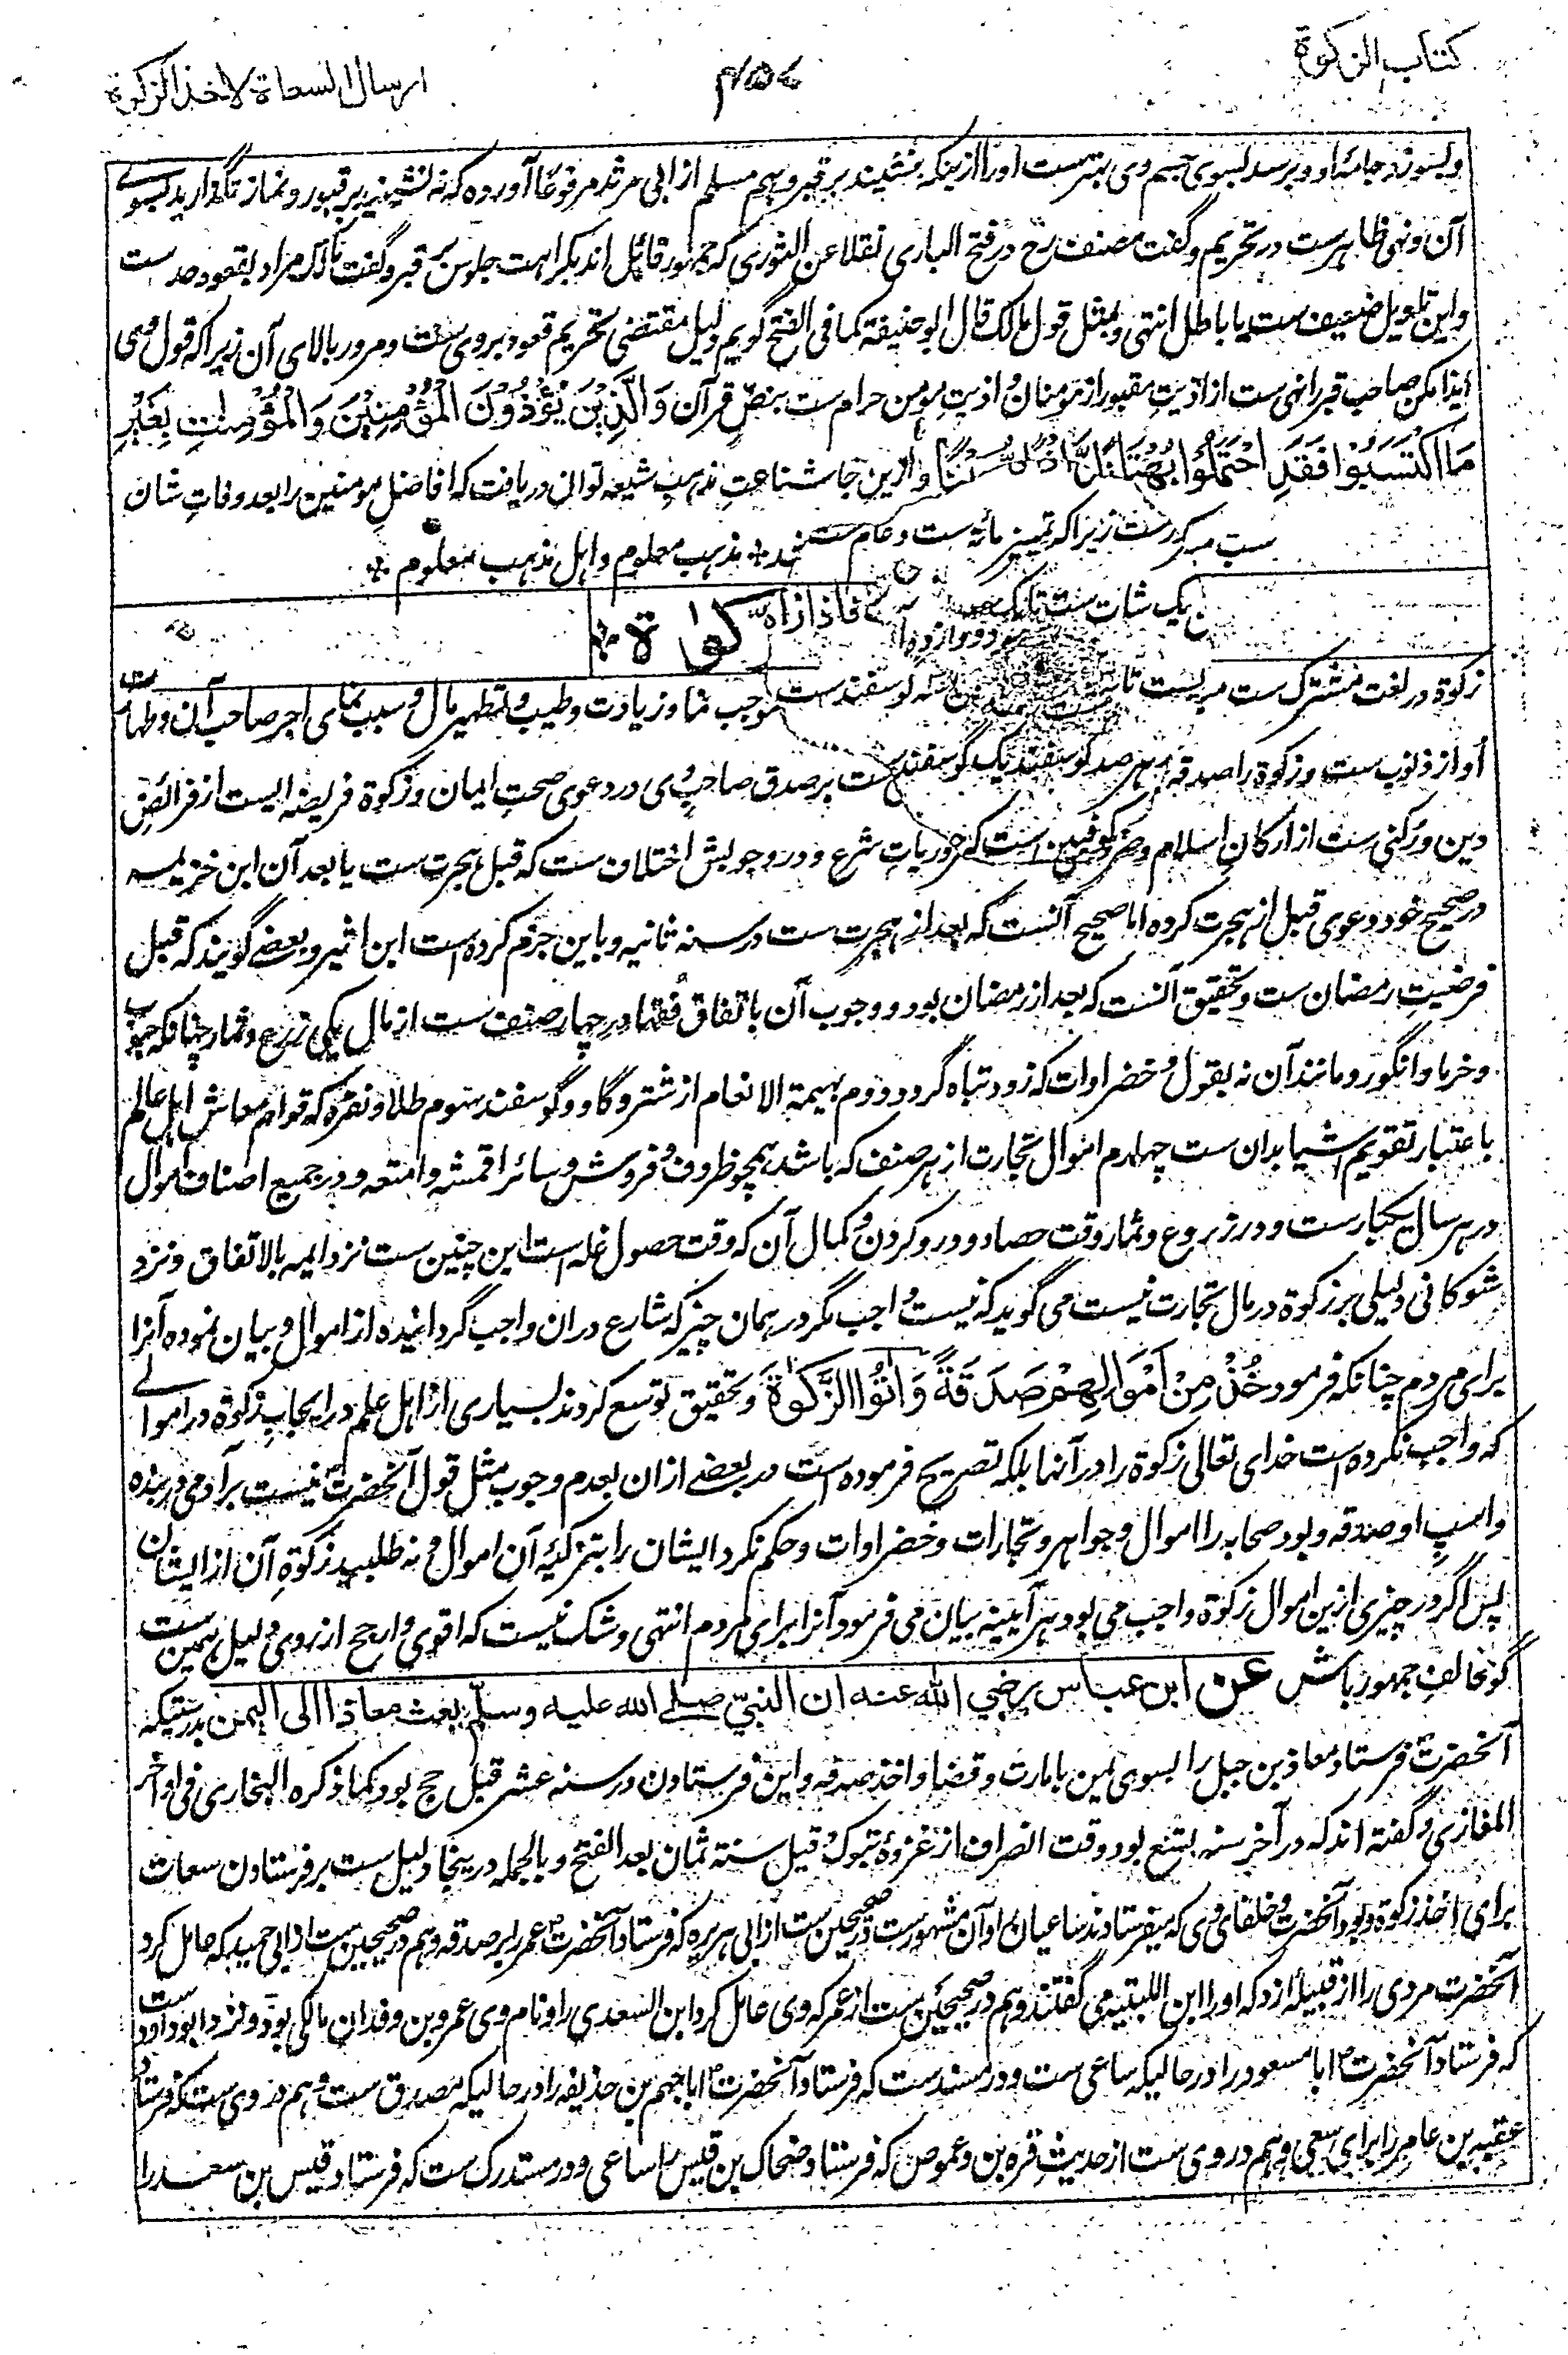 کتاب الزکوة
۴۵۷
ارسال السعاة لاخذ الزکوة
وبسوزد جامهٔ او و برسد بسوی جسم وی بهترست اورا ازینکه بنشیند بر قبر و هم مسلم از ابی مرثد مرفوعًا آورده که نه نشینید بر قبور و نماز نگذارید بسوے
آن و نهی ظاهرست در تحریم و گفت مصنف رح در فتح الباری نقلا عن النووی که جمهور قائل اند بکراهت جلوس بر قبر و گفت مالک مراد بقعود حدث ست
و این تاویل ضعیف ست یا باطل انتهی و بمثل قول مالک قال ابو حنیفة کما فی الفتح گویم دلیل مقتضی تحریم قعود بر وی ست و مرور بالای آن زیراکه قول وی
ایذا مکن صاحب قبر را نهی ست از اذیت مقبور از مومنان و اذیت مومن حرام ست بنص قرآن وَالَّذِيْنَ يُؤْذُوْنَ الْمُؤْمِنِيْنَ وَالْمُؤْمِنٰتِ بِغَيْرِ
مَا اكْتَسَبُوْا فَقَدِ احْتَمَلُوْا بُهْتَانًا وازین جا شناعتِ مذهب شیعه توان دریافت که افاضل مومنین را بعد وفاتِ شان
سب میکنند مذهب معلوم و اهل مذهب معلوم
کوٰة
زکوة در لغت مشترک ست موجب نما و زیادت و طیب و تطهیر مال و سبب نمای اجر صاحب آن و طهارت
او از ذنوب ست و زکوة را صدقه هر صد گوسفند یک گوسفند ست بر صدق صاحب وی در دعوی صحتِ ایمان و زکوة فریضه ایست از فرائض
دین و رکنی ست از ارکان اسلام و ضروریاتِ شرع و در وجوبش اختلاف ست که قبل هجرت ست یا بعد آن ابن خزیمه
در صحیح خود دعوی قبل از هجرت کرده اما صحیح آنست که بعد از هجرت ست در سنه ثانیه و باین جزم کرده است ابن اثیر و بعضے گویند که قبل
فرضیتِ رمضان ست و تحقیق آنست که بعد از رمضان بود و وجوب آن باتفاق فقها در چهار صنف ست از مال یکی زرع و ثمار چنانکه حبوب
و خرما و انگور و مانند آن نه بقول و خضراوات که زود تباه گردد دوم بهیمة الانعام از شتر و گاو و گوسفند سوم طلا و نقره که قوام معاش اهل عالم
باعتبار تقویم اشیا بدان ست چهارم اموال تجارت از هر صنف که باشد همچو ظروف و فروش و سائر اقمشه و امتعه و در جمیع اصناف اموال
در هر سال یکبارست و در زروع و ثمار وقت حصاد و درو کردن و کمال آن که وقت حصول غله است این چنین ست نزد ایمه بالاتفاق و نزد
شوکانی دلیلی بر زکوة در مال تجارت نیست می گوید که نیست واجب مگر در همان چیز که شارع دران واجب گردانیده از اموال و بیان نموده آنرا
برای مردم چنانکه فرمود خُذْ مِنْ اَمْوَالِهِمْ صَدَقَةً وَاٰتُوا الزَّكٰوةَ و تحقیق توسع کردند بسیاری از اهل علم در ایجاب زکوة در اموالے
که واجب نکرده است خدای تعالی زکوة را در آنها بلکه تصریح فرموده است در بعضے ازان بعدم وجوب مثل قول آنحضرت نیست بر آدمی در بنده
و اسپ او صدقه و بود صحابه را اموال و جواهر و تجارات و خضراوات و حکم نکرد ایشان را بتزکیهٔ آن اموال و نه طلبید زکوةِ آن از ایشان
پس اگر در چیزی ازین اموال زکوة واجب می بود هر آیینه بیان می فرمود آنرا برای مردم انتهی و شک نیست که اقوی و ارجح از روی دلیل همین ست
گو مخالف جمهور باش عن ابن عباس رضي الله عنه ان النبي صلے الله عليه وسلم بعث معاذا الى اليمن بدرستیکه
آنحضرت فرستاد معاذ بن جبل را بسوی یمن بامارت و قضا و اخذ صدقه و این فرستادن در سنه عشر قبل حج بود کما ذکره البخاری فی اواخر
المغازی و گفته اند که در آخر سنه تسع بود وقت انصراف از غزوهٔ تبوک و قیل سنة ثمان بعد الفتح و بالجمله درینجا دلیل ست بر فرستادن سعات
برای اخذ زکوة و بود آنحضرت و خلفای وی که میفرستادند ساعیان را و آن مشهورست در صحیحین ست از ابی هریره که فرستاد آنحضرت عمر را بر صدقه و هم در صحیحین ست از ابی حمید که عامل کرد
آنحضرت مردی را از قبیلهٔ ازد که اورا ابن اللتبیه می گفتند و هم در صحیحین ست از عمر که وی عامل کرد ابن السعدی را و نام وی عمرو بن وقدان مالکی بود و نزد ابوداود ست
که فرستاد آنحضرت ابا مسعود را در حالیکه ساعی ست و در مسند ست که فرستاد آنحضرت ابا جهم بن حذیفه را در حالیکه مصدق ست و هم در وی ست که فرستاد
عقبه بن عامر را برای سعی و هم در وی ست از حدیث قره بن دعموص که فرستاد ضحاک بن قیس را ساعی و در مستدرک ست که فرستاد قیس بن سعد را